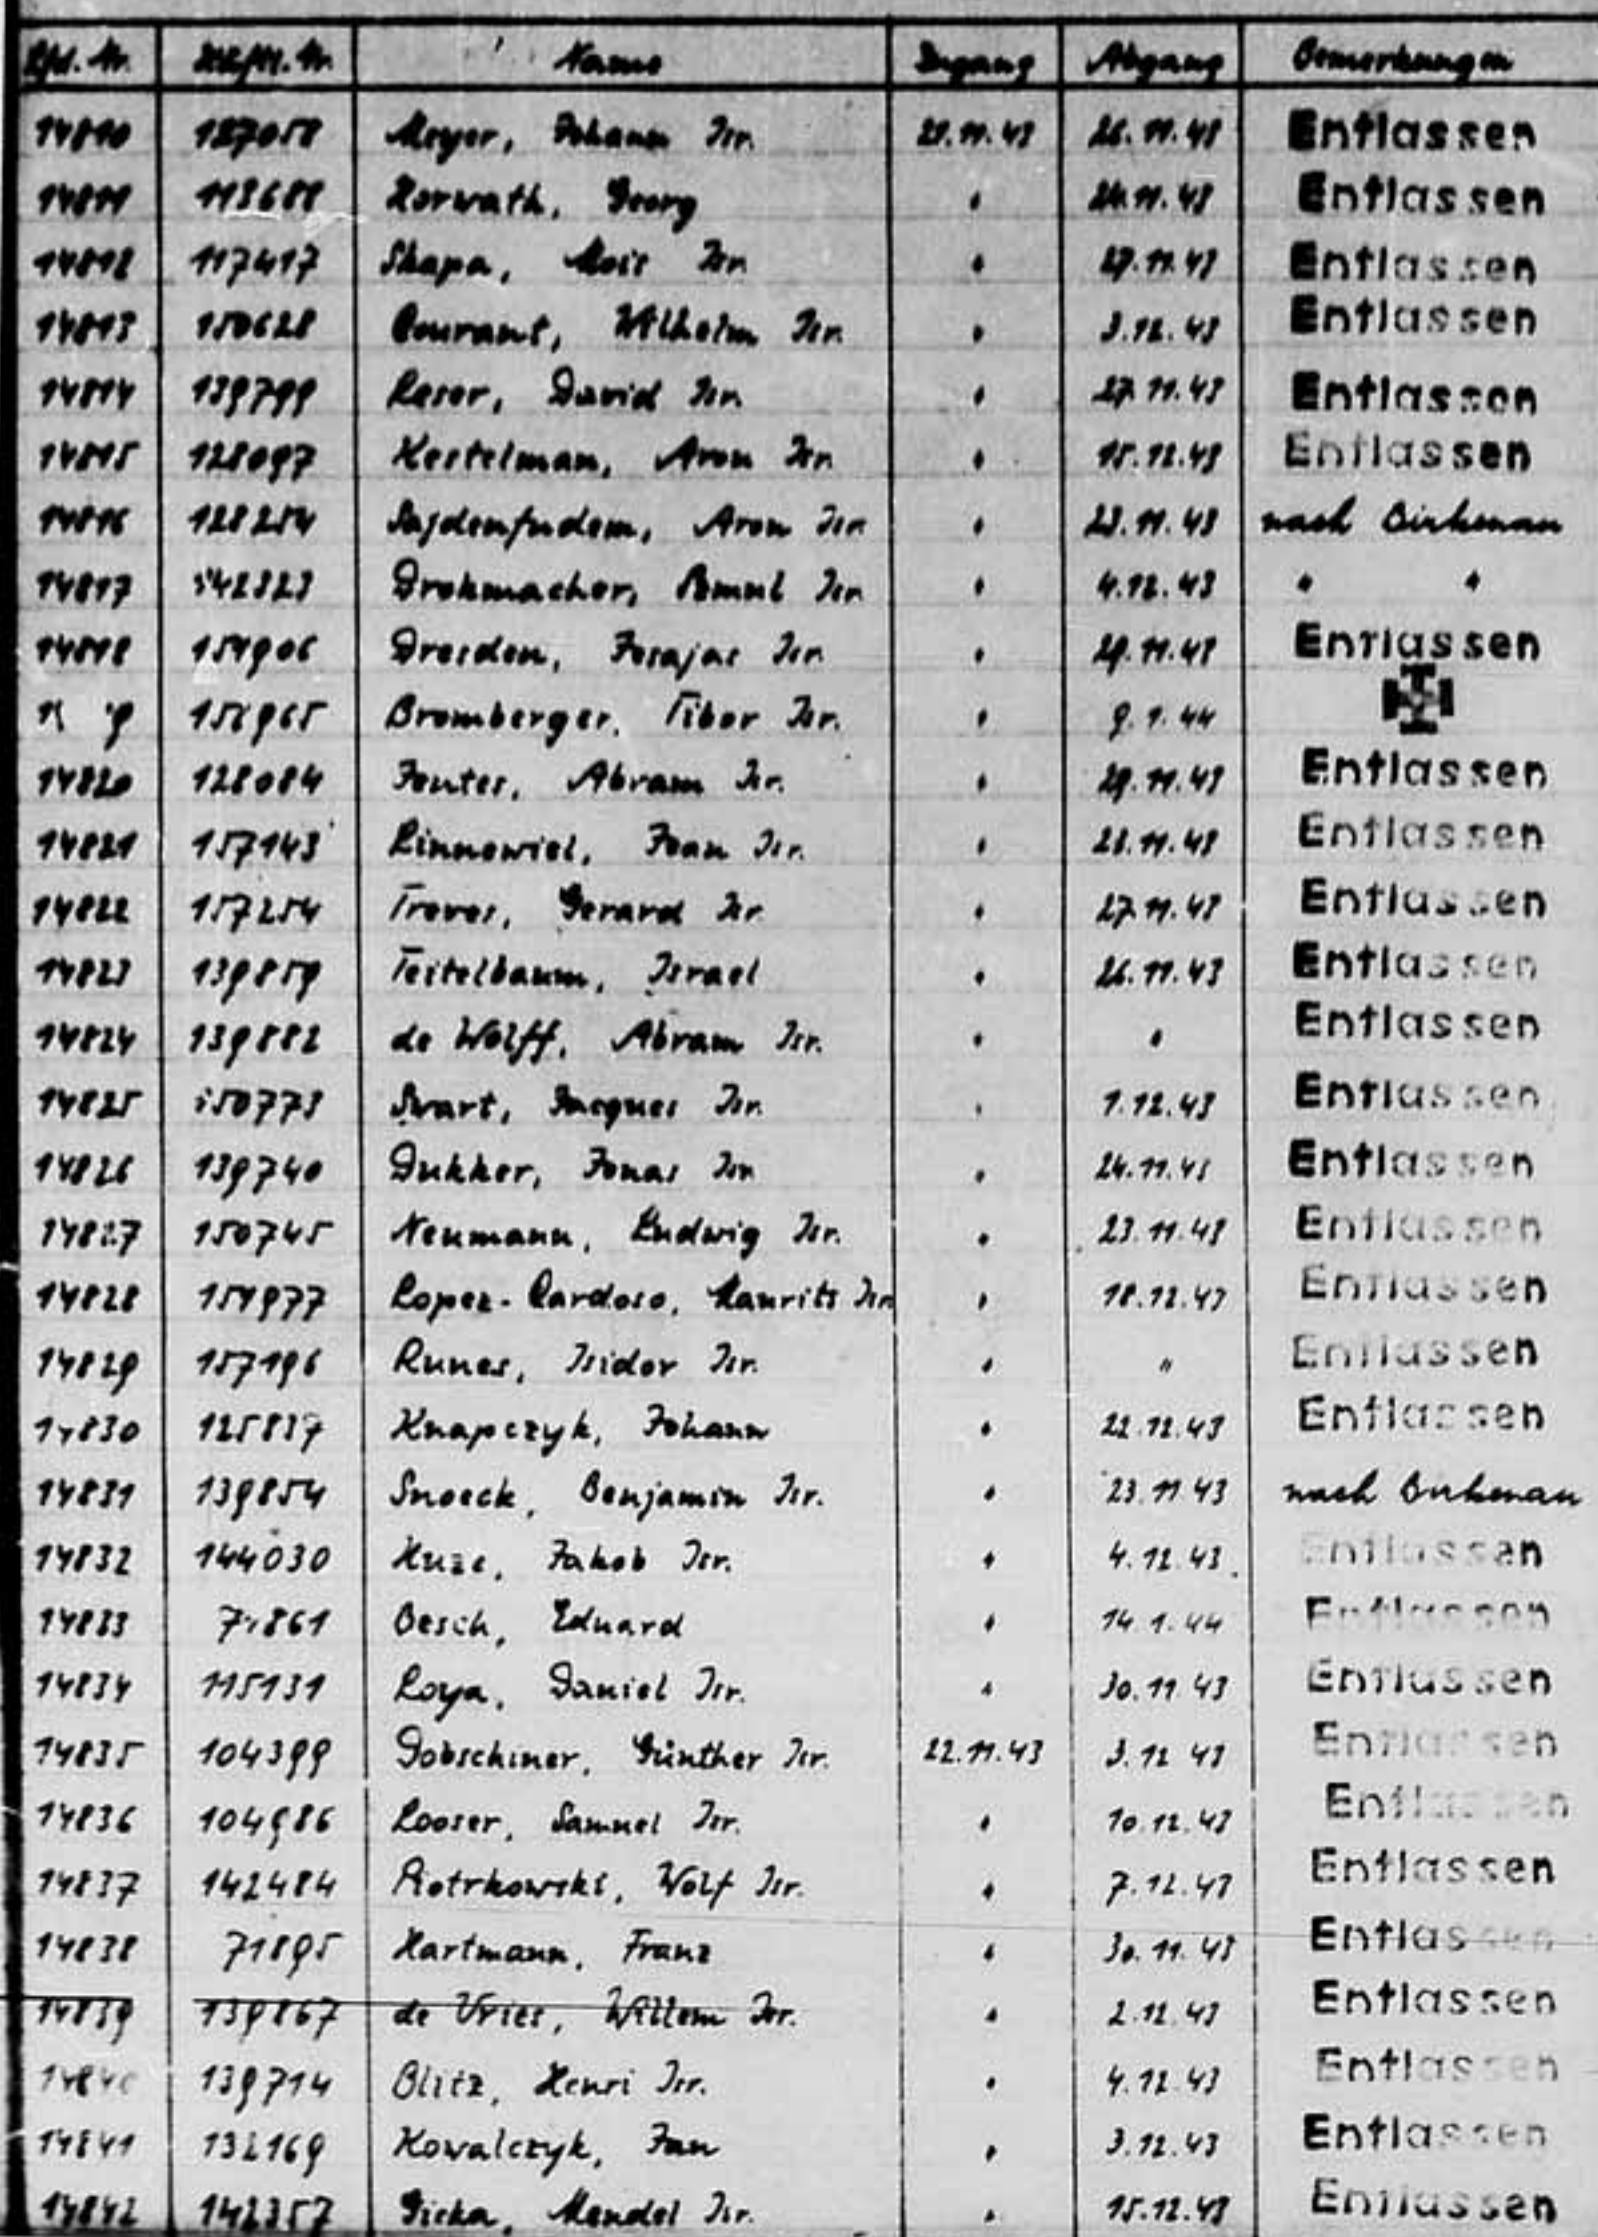 Lfd. Nr. Häftl. Nr. Name Zugang Abgang Bemerkungen
14810 127058 Meyer, Johann Isr. 21.11.43 26.11.43 Entlassen
14811 113688 Horwath, Georg " 24.11.43 Entlassen
14812 117417 Skapa, Isr. " 27.11.43 Entlassen
14813 150628 Courant, Wilhelm Isr. " 3.12.43 Entlassen
14814 139799 Leser, David Isr. " 27.11.43 Entlassen
14815 128097 Kestelman, Aron Isr. " 15.12.43 Entlassen
14816 128254 Sajdenfudem, Aron Isr. " 23.11.43 nach Birkenau
14817 142323 Drohmacher, Isr. " 4.12.43 " "
14818 151906 Dresden, Jesajas Isr. " 29.11.43 Entlassen
156965 Bromberger, Tibor Isr. " 9.1.44
14820 128084 Jentes, Abram Isr. " 29.11.43 Entlassen
14821 157143 Linnewiel, Jean Isr. " 28.11.43 Entlassen
14822 157254 Treves, Gerard Isr. " 27.11.43 Entlassen
14823 139859 Teitelbaum, Israel " 26.11.43 Entlassen
14824 139882 de Wolff, Abram Isr. " " Entlassen
14825 150773 Swart, Jacques Isr. " 1.12.43 Entlassen
14826 139740 Dukker, Jonas Isr. " 24.11.43 Entlassen
14827 150745 Neumann, Ludwig Isr. " 23.11.43 Entlassen
14828 151977 Lopez-Cardoso, Maurits Isr. " 18.12.43 Entlassen
14829 157196 Runes, Isidor Isr. " " Entlassen
14830 125837 Knapczyk, Johann " 22.12.43 Entlassen
14831 139854 Snoeck, Benjamin Isr. " 23.11.43 nach Birkenau
14832 144030 Huze, Jakob Isr. " 4.12.43 Entlassen
14833 Oesch, Eduard " 14.1.44 Entlassen
14834 115131 Loya, Daniel Isr. " 30.11.43 Entlassen
14835 104399 Dobschiner, Günther Isr. 22.11.43 3.12.43 Entlassen
14836 104986 Looser, Samuel Isr. " 10.12.43 Entlassen
14837 142484 Piotrkowski, Wolf Isr. " 7.12.43 Entlassen
14838 71895 Hartmann, Franz " 30.11.43 Entlassen
14839 139867 de Vries, Willem Isr. " 2.12.43 Entlassen
14840 139714 Blitz, Henri Isr. " 4.12.43 Entlassen
14841 132169 Kowalczyk, Jan " 3.12.43 Entlassen
14842 142357 Mendel Isr. " 15.12.43 Entlassen